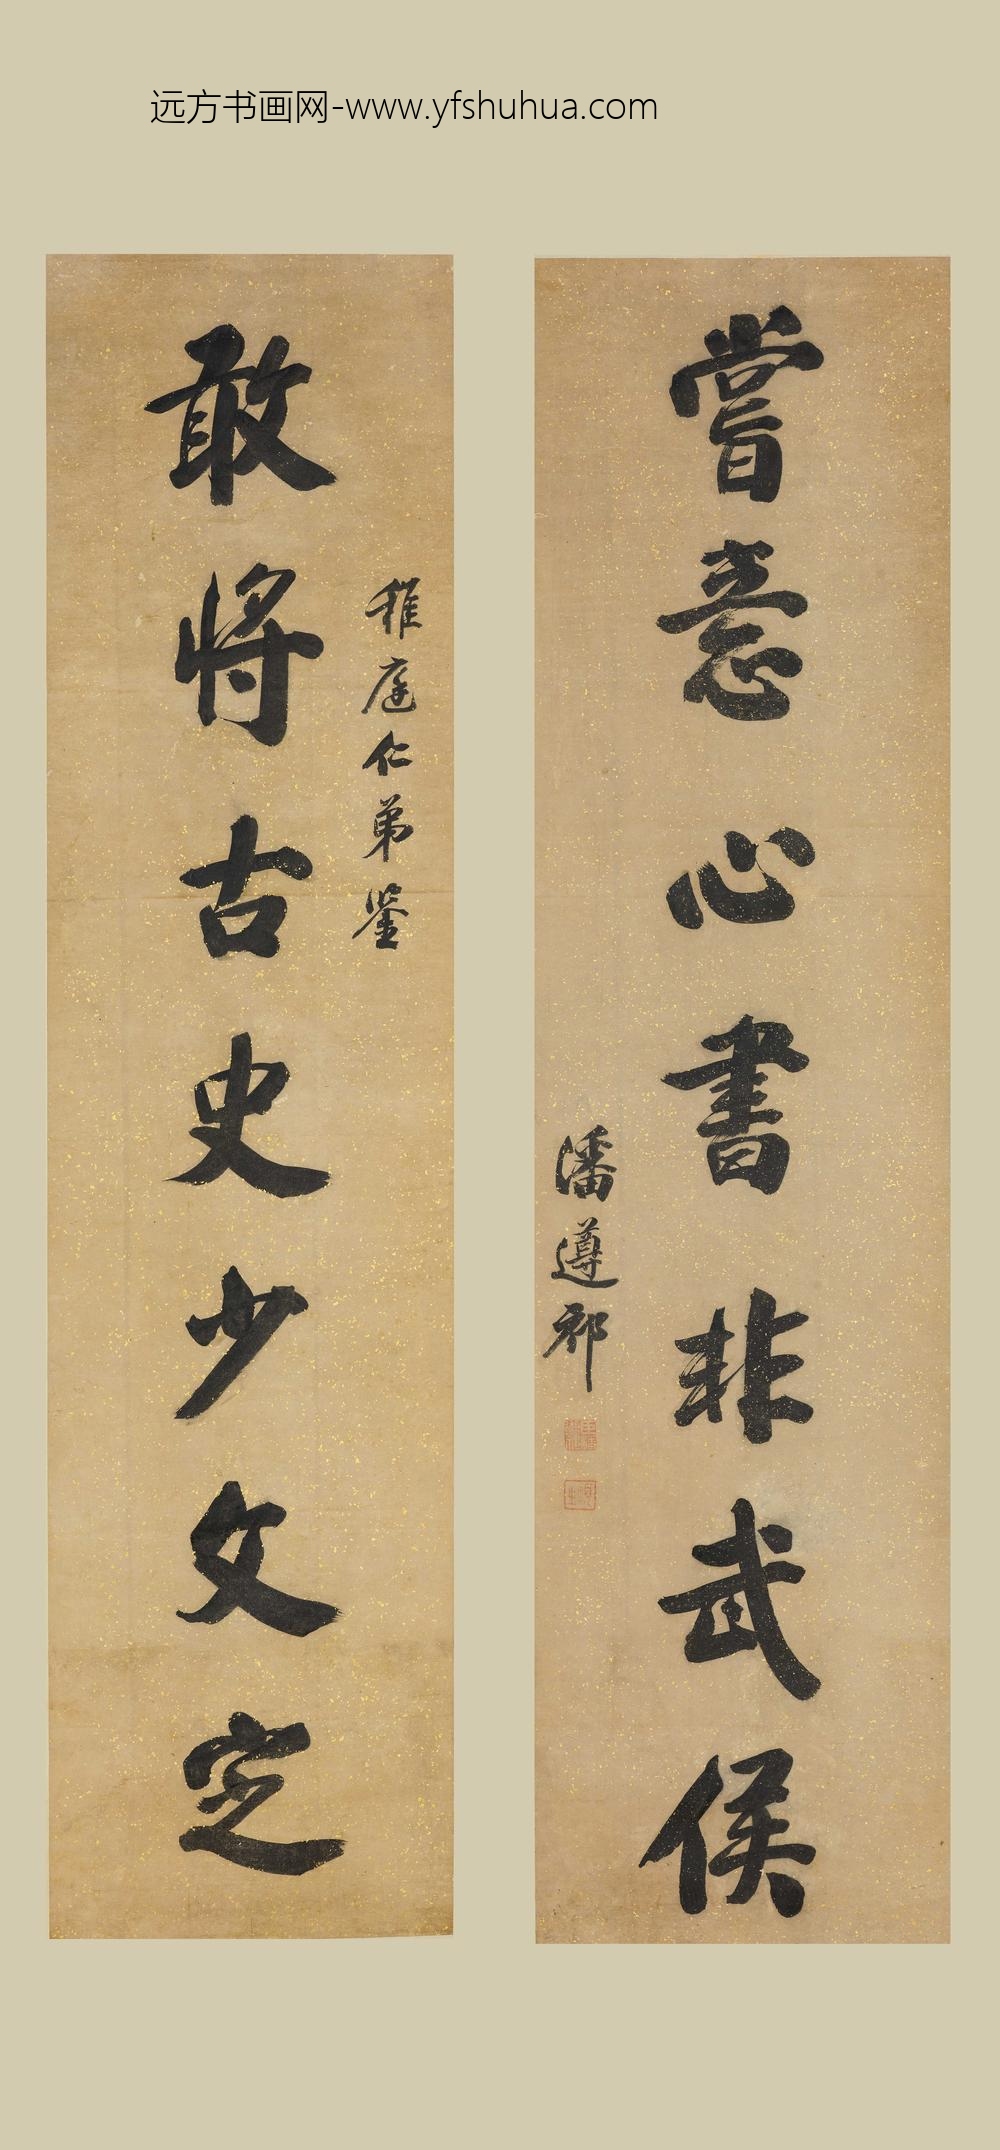 远方书画网-www.yfshuhua.com
嘗意心書非武侯
潘遵祁
稚庭仁弟鉴
敢將古史少文定